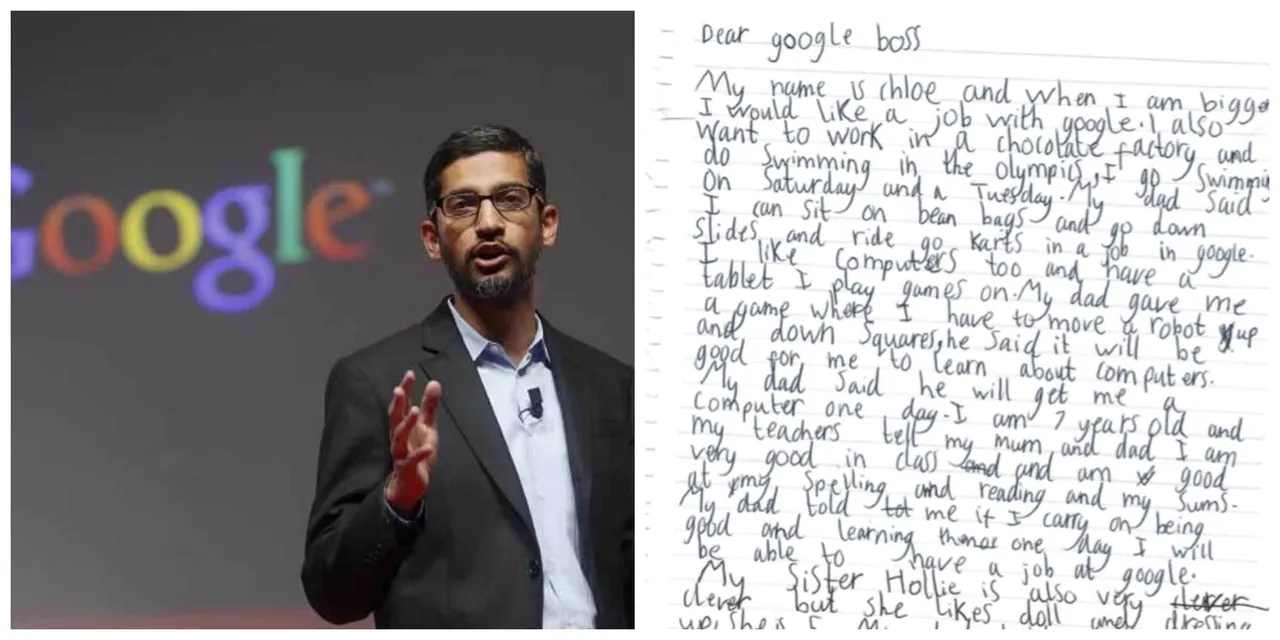 Google
Dear google boss
My name is chloe and when I am bigge
I would like a job with google. I also
want to work in a chocolate factory and
do swimming in the olympics, I go swimmi
on Saturday and a Tuesday. My dad said
I can sit on bean bags and go down
slides and ride go karts in a job in google.
I like computers too and have a
tablet I play games on. My dad gave me
a game where I have to move a robot up
and down squares, he said it will be
good for me to learn about computers.
My dad said he will get me a
computer one day. I am 7 years old and
my teachers tell my mum and dad I am
very good in class and and am good
at my spelling and reading and my sums.
My dad told me if I carry on being
good and learning one day I will
be able to have a job at google.
My Sister Hollie is also very clever
clever but she likes doll and dressing
up, she is 5.